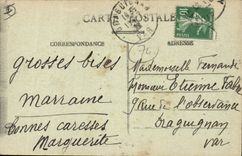 CARTE POSTALE
CORRESPONDANCE
ADRESSE
grosses bises
Marraine
bonnes caresses
Marguerite
Mademoiselle Fernande
Germain Etienne Fabre
9 Rue de l'observance
Draguignan
Var